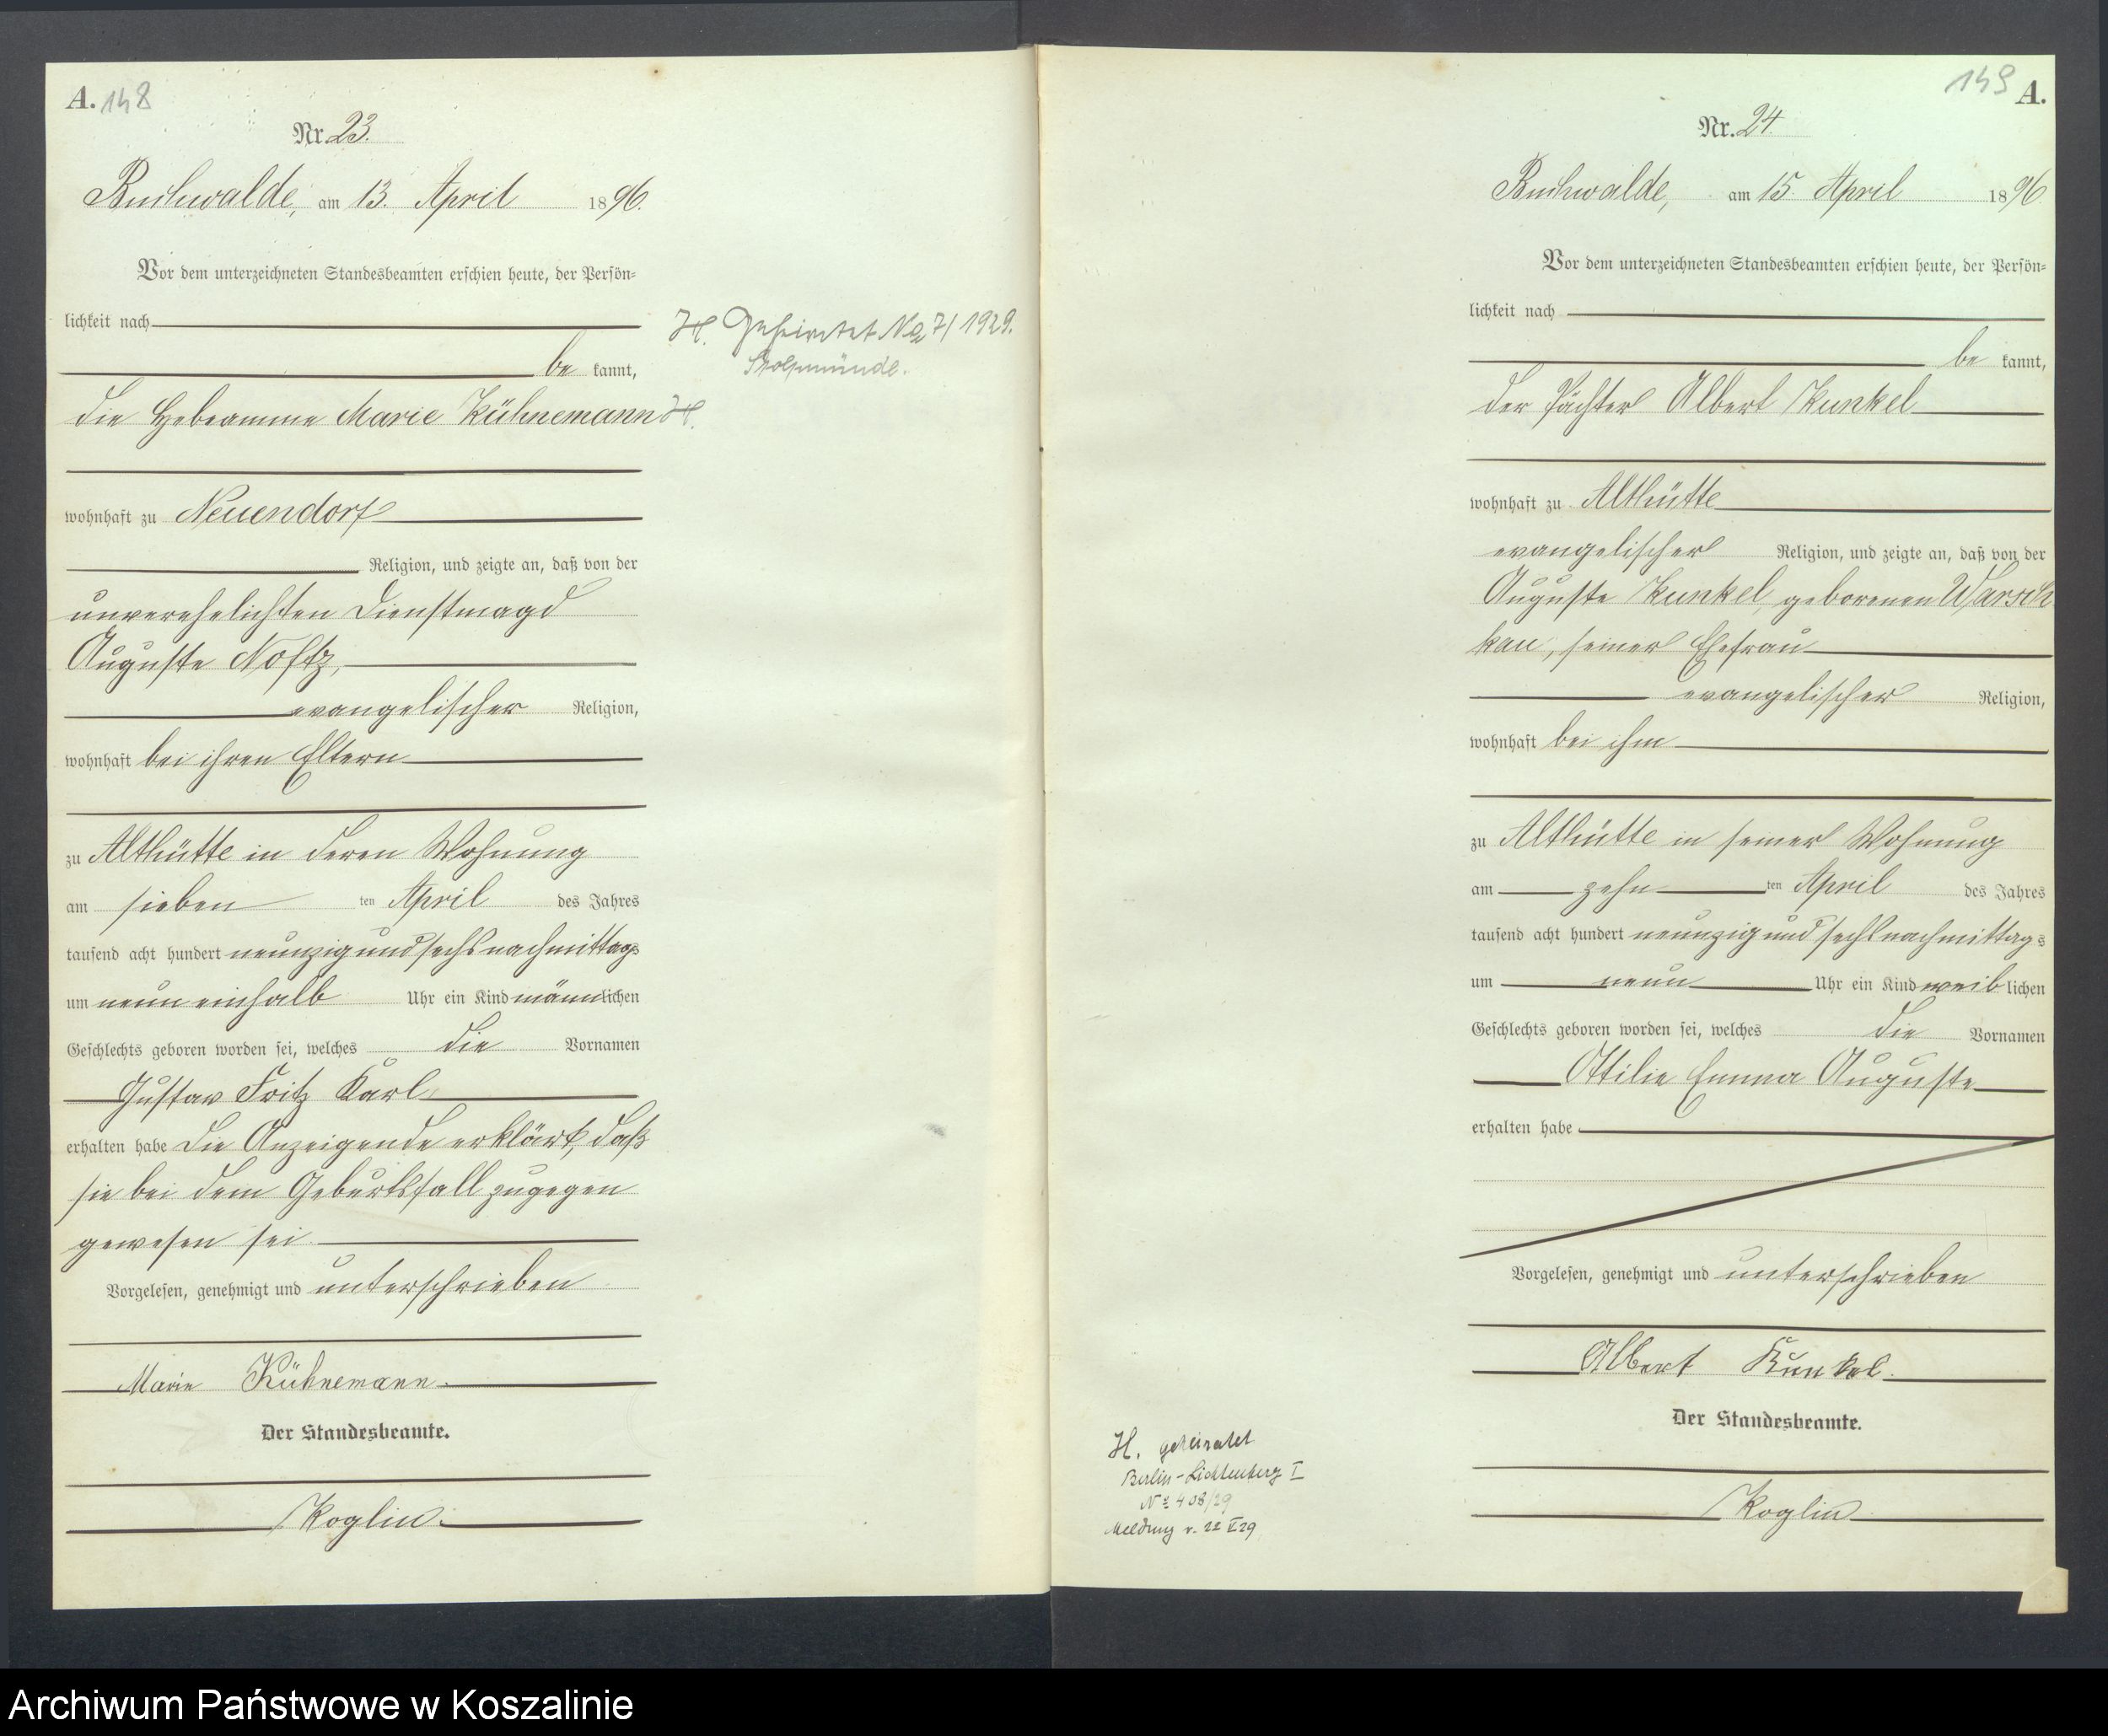 A. 148
Nr. 23.
Buchwalde, am 13. April 1896.
Vor dem unterzeichneten Standesbeamten erschien heute, der Persön-
lichkeit nach
be kannt,
die Hebeamme Marie Kühnemann
wohnhaft zu Neuendorf
Religion, und zeigte an, daß von der
unverehelichten Dienstmagd
Auguste Noftz,
evangelischer Religion,
wohnhaft bei ihren Eltern
zu Althütte in deren Wohnung
am sieben ten April des Jahres
tausend acht hundert neunzig und sechs nachmittags
um neun einhalb Uhr ein Kind männlichen
Geschlechts geboren worden sei, welches die Vornamen
Gustav Fritz Karl
erhalten habe Die Anzeigende erklärt, daß
sie bei dem Geburtsfall zugegen
gewesen sei.
Vorgelesen, genehmigt und unterschrieben
Marie Kühnemann.
Der Standesbeamte.
Koglin.
H. Geheiratet No 7/1929.
Stolpmünde.
H.
149 A.
Nr. 24.
Buchwalde, am 15. April 1896
Vor dem unterzeichneten Standesbeamten erschien heute, der Persön-
lichkeit nach
be kannt,
der Pächter Albert Kunkel
wohnhaft zu Althütte
evangelischer Religion, und zeigte an, daß von der
Auguste Kunkel, geborenen Warsch
kau, seiner Ehefrau
evangelischer Religion,
wohnhaft bei ihm
zu Althütte in seiner Wohnung
am zehn ten April des Jahres
tausend acht hundert neunzig und sechs nachmittags
um neun Uhr ein Kind weiblichen
Geschlechts geboren worden sei, welches die Vornamen
Ottilie Emma Auguste
erhalten habe
Vorgelesen, genehmigt und unterschrieben
Albert Kunkel.
Der Standesbeamte.
Koglin
H. geheiratet
Berlin-Lichtenberg I
No 408/29
Meldung v. 22 V 29
Archiwum Państwowe w Koszalinie